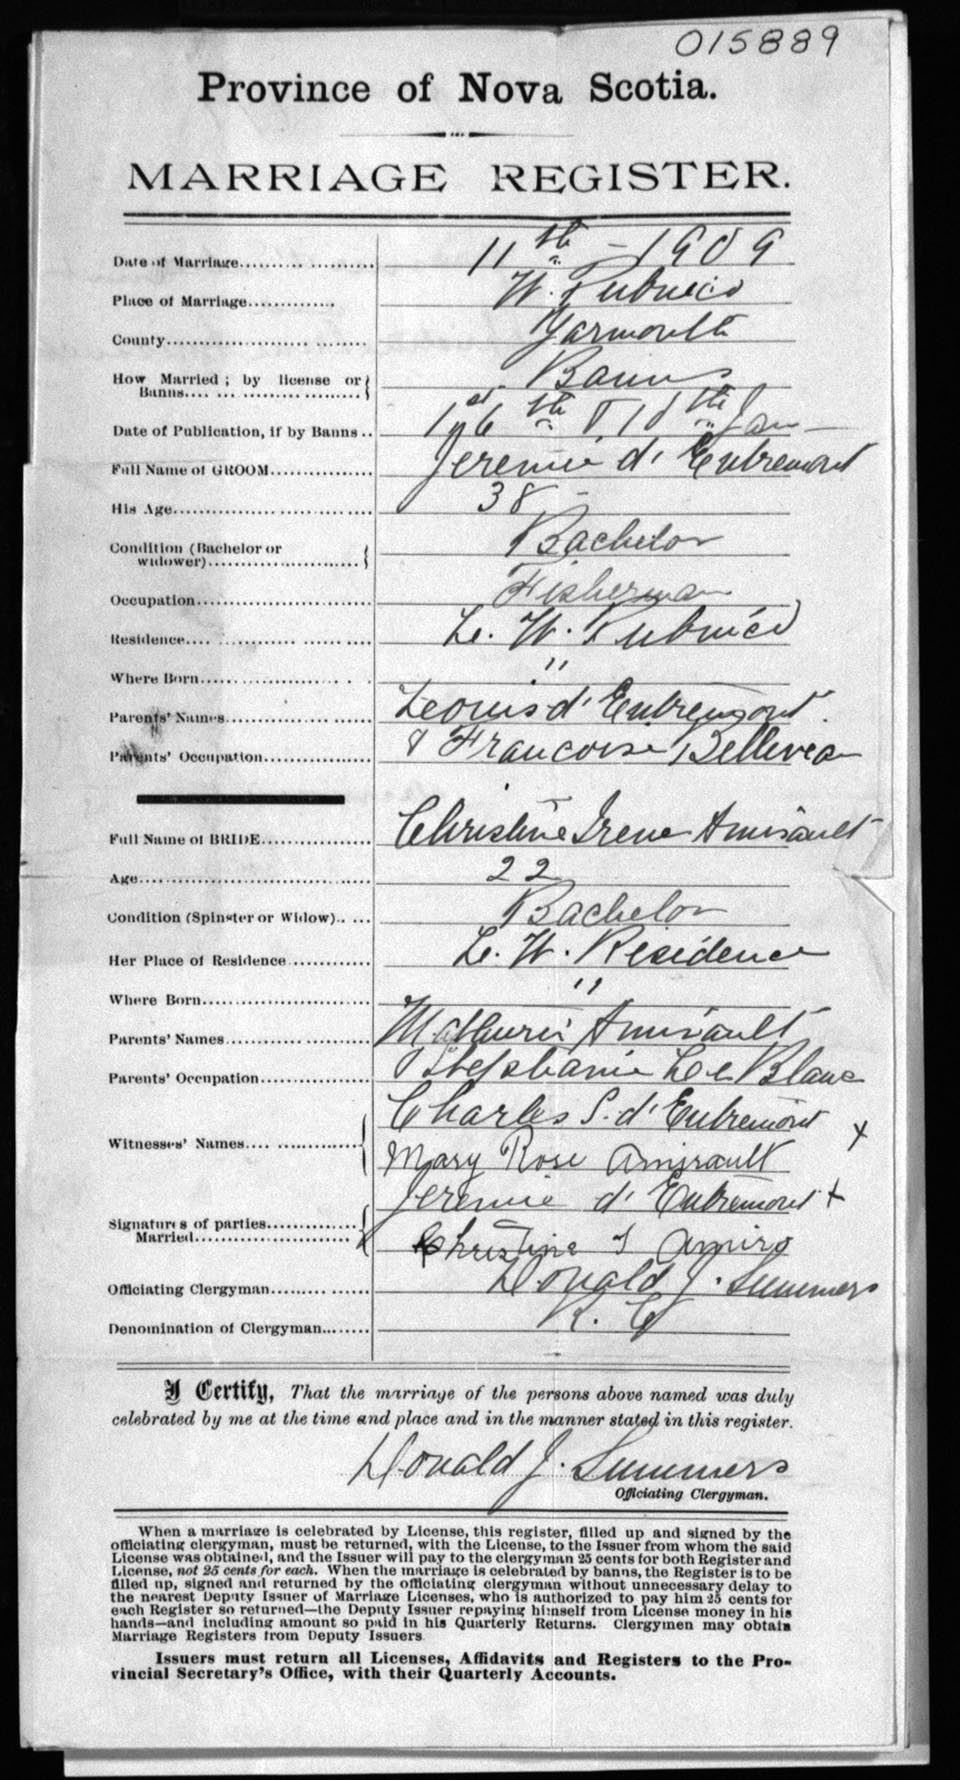 015889
Province of Nova Scotia.
MARRIAGE REGISTER.
Date of Marriage 11th - 1909
Place of Marriage W. Pubnico
County Yarmouth
How Married; by license or Banns Banns
Date of Publication, if by Banns 1st 6th & 10th Jan
Full Name of GROOM Jeremie d'Entremont
His Age 38
Condition (Bachelor or widower) Bachelor
Occupation Fisherman
Residence Le. W. Pubnico
Where Born "
Parents' Names Leonis d'Entremont
Parents' Occupation & Francoise Belliveau
Full Name of BRIDE Christine Irene Amirault
Age 22
Condition (Spinster or Widow) Bachelor
Her Place of Residence Le. W. Residence
Where Born "
Parents' Names Mathurin Amirault
Parents' Occupation & Stephanie Lee Blanc
Charles S. d'Entremont x
Witnesses' Names
Mary Rose Amirault
Jeremie d'Entremont x
Signatures of parties Married
Christine I Amiro
Officiating Clergyman Donald J. Summers
Denomination of Clergyman R. C
I Certify, That the marriage of the persons above named was duly
celebrated by me at the time and place and in the manner stated in this register.
Donald J. Summers
Officiating Clergyman.
When a marriage is celebrated by License, this register, filled up and signed by the
officiating clergyman, must be returned, with the License, to the Issuer from whom the said
License was obtained, and the Issuer will pay to the clergyman 25 cents for both Register and
License, not 25 cents for each. When the marriage is celebrated by banns, the Register is to be
filled up, signed and returned by the officiating clergyman without unnecessary delay to
the nearest Deputy Issuer of Marriage Licenses, who is authorized to pay him 25 cents for
each Register so returned—the Deputy Issuer repaying himself from License money in his
hands—and including amount so paid in his Quarterly Returns. Clergymen may obtain
Marriage Registers from Deputy Issuers
Issuers must return all Licenses, Affidavits and Registers to the Pro-
vincial Secretary's Office, with their Quarterly Accounts.